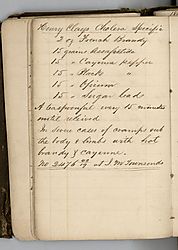 Henry Clays Cholera Specific
2 oz French Brandy
15 grains Assafoetida
15 " Cayenne Pepper
15 "
15 " Opium
15 " Sugar leads
A teaspoonful every 15 minutes
until relieved
In some cases of cramps rub
the body & limbs with hot
brandy & cayenne.
No 2476 at J M Townsends